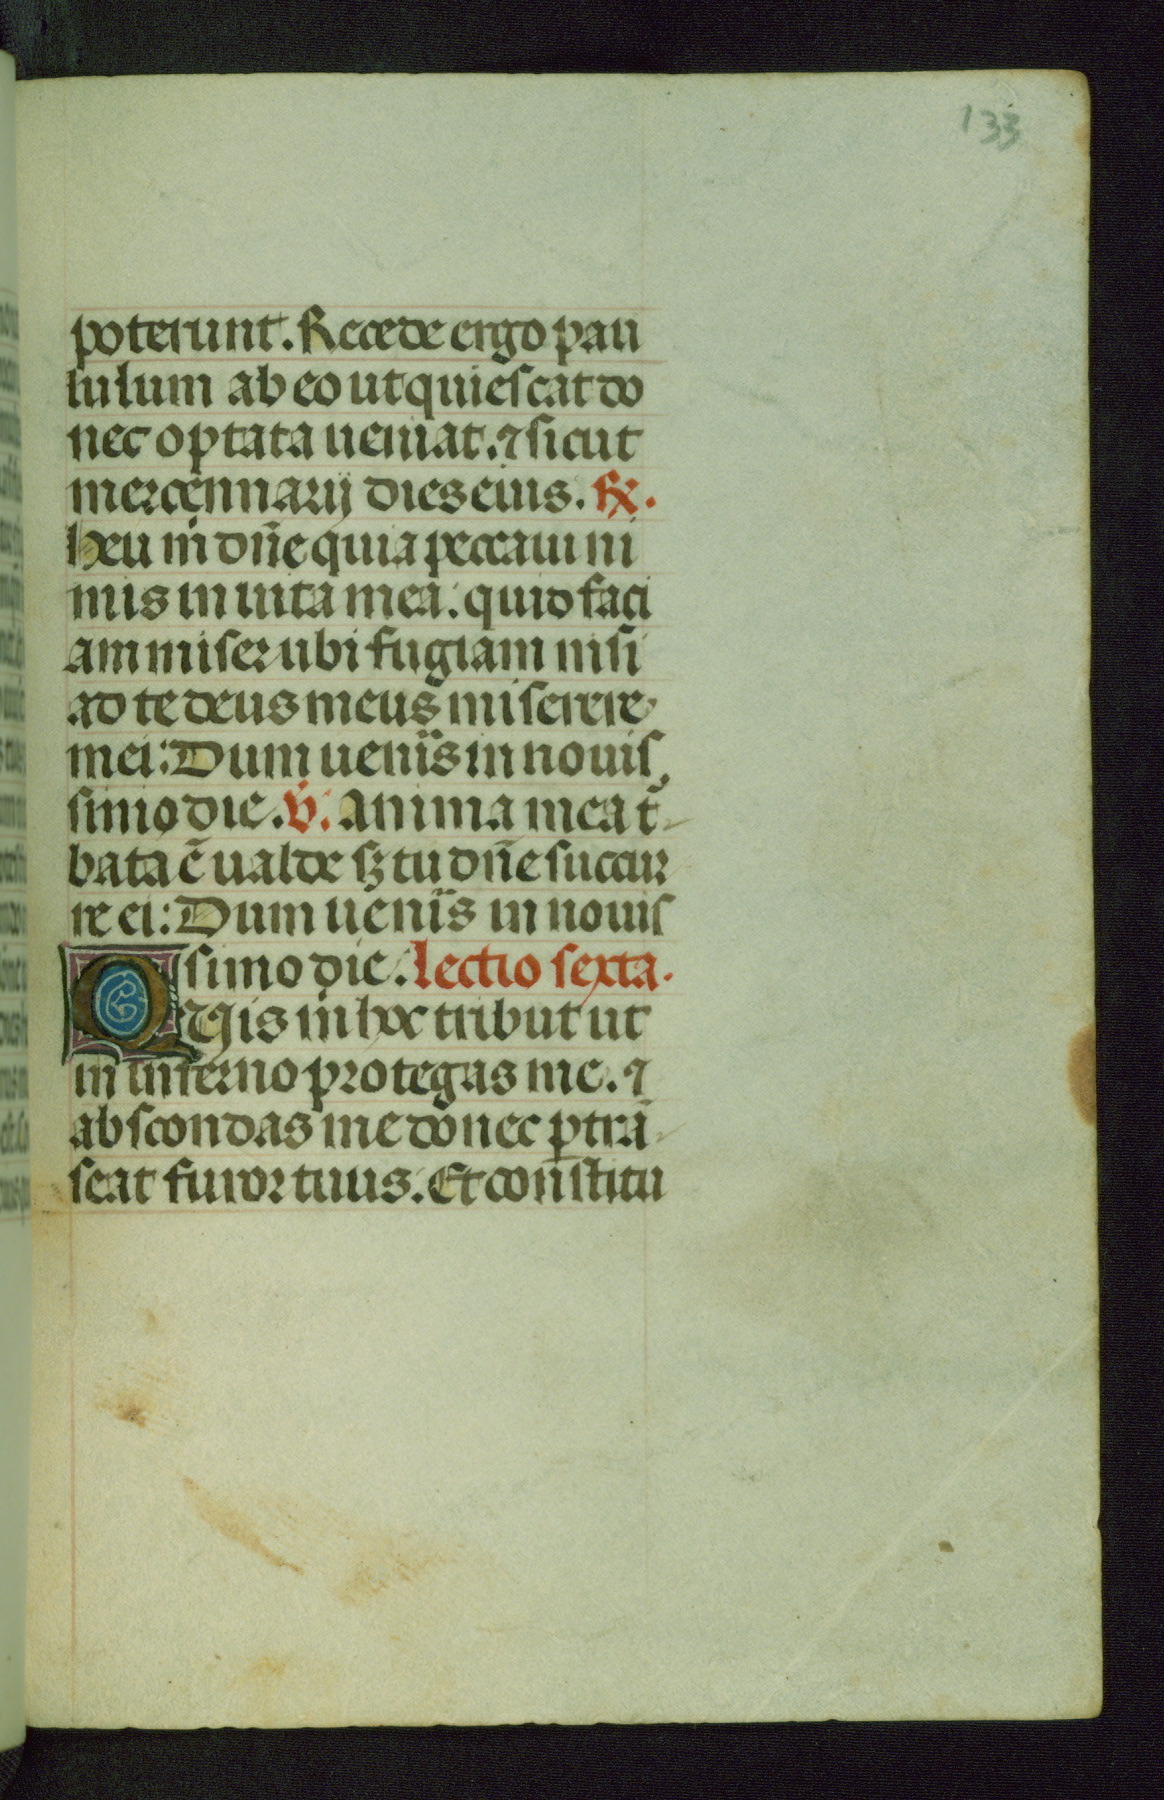 133
poterunt. Recede ergo pau
lulum ab eo ut quiescat do
nec optata ueniat. ⁊ sicut
mercennarij dies eius. ℞.
heu m̄ dn̄e quia peccaui ni
mis in uita mea: quid faci
am miser ubi fugiam nisi
ad te deus meus miserere
mei: Dum ueniis in nouis
simo die. ℣. Anima mea t̄
bata ē ualde sꝫ tu dn̄e succur
re ei: Dum ueniis in nouis
simo die. lectio sexta.
Quis m̄ hoc tribut ut
in inferno protegas me. ⁊
abscondas me donec ꝑtrā
seat furor tuus. Et constitu